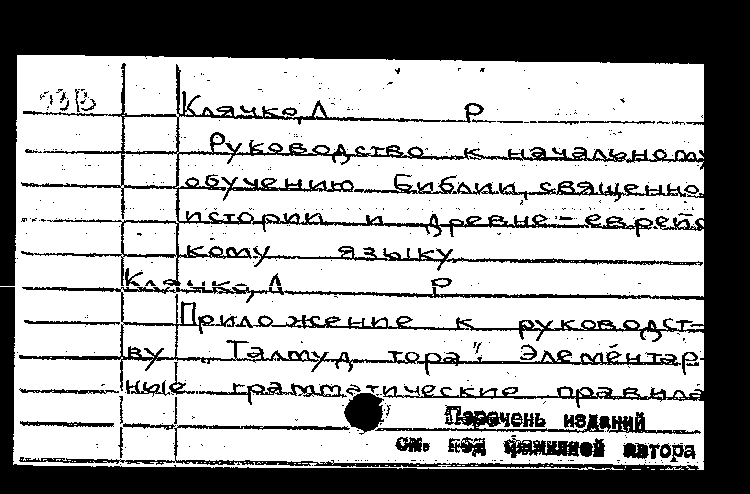 13В
Клячко, Л Р
Руководство к начальному
обучению Библии, священно
истории и древне-еврейс
кому языку
Клячко, Л Р
Приложение к руководст-
ву „Талмуд тора". Элементар-
ные грамматические правила
Перечень изданий
см. под фамилией автора